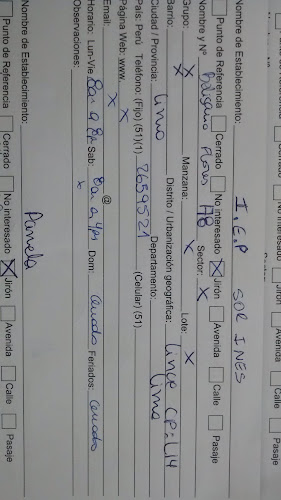 Nombre de Establecimiento: I.E.P SOR INES
Punto de Referencia Cerrado No interesado Jirón Avenida Calle Pasaje
Nombre y Nº Flores
Grupo: X Manzana: X Sector: X Lote: X
Barrio: X Distrito / Urbanización geográfica: Lince CP: L14
Ciudad / Provincia: Lima Departamento: Lima
País: Perú Teléfono: (Fijo) (51)(1) 2659521 (Celular) (51)
Página Web: www. X
Email: X @
Horario: Lun-Vie 8am a 8pm Sab: 8am a 4pm Dom: Cerrado Feriados: Cerrado
Observaciones:
Nombre de Establecimiento: Pamela
Punto de Referencia Cerrado No interesado Jirón Avenida Calle Pasaje